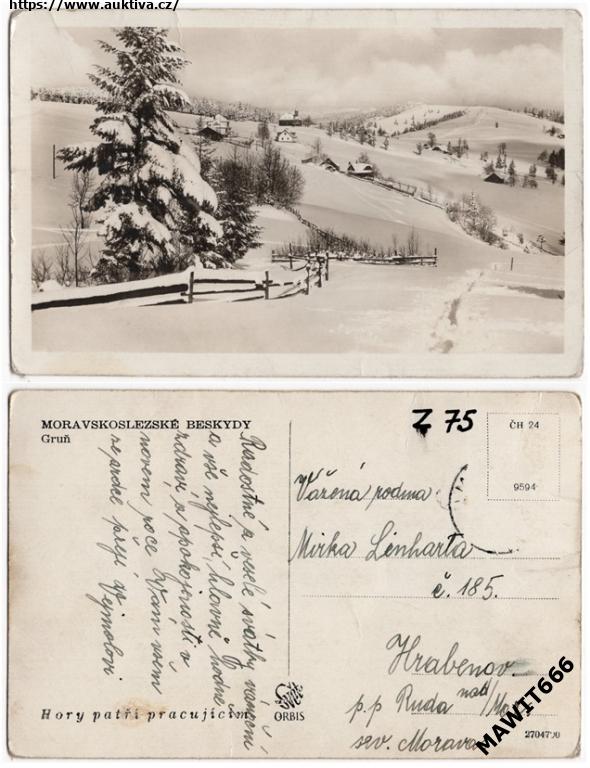 https://www.auktiva.cz/
MORAVSKOSLEZSKÉ BESKYDY
Gruň
Radostné a veselé svátky vánoční
a vše nejlepší, hlavně hodně
zdraví a spokojenosti v
novém roce Vám všem
ze srdce přejí Vojmolovi
Z 75
ČH 24
9594
Vážená rodina
Mirka Linharta
č. 185.
Hrabenov
p.p Ruda nad/Mor
sev. Morava
Hory patří pracujícím
ORBIS
MAWIT666